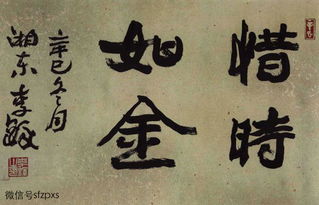 惜時
如金
辛巳冬月
湘东李毅
微信号sfzpxs